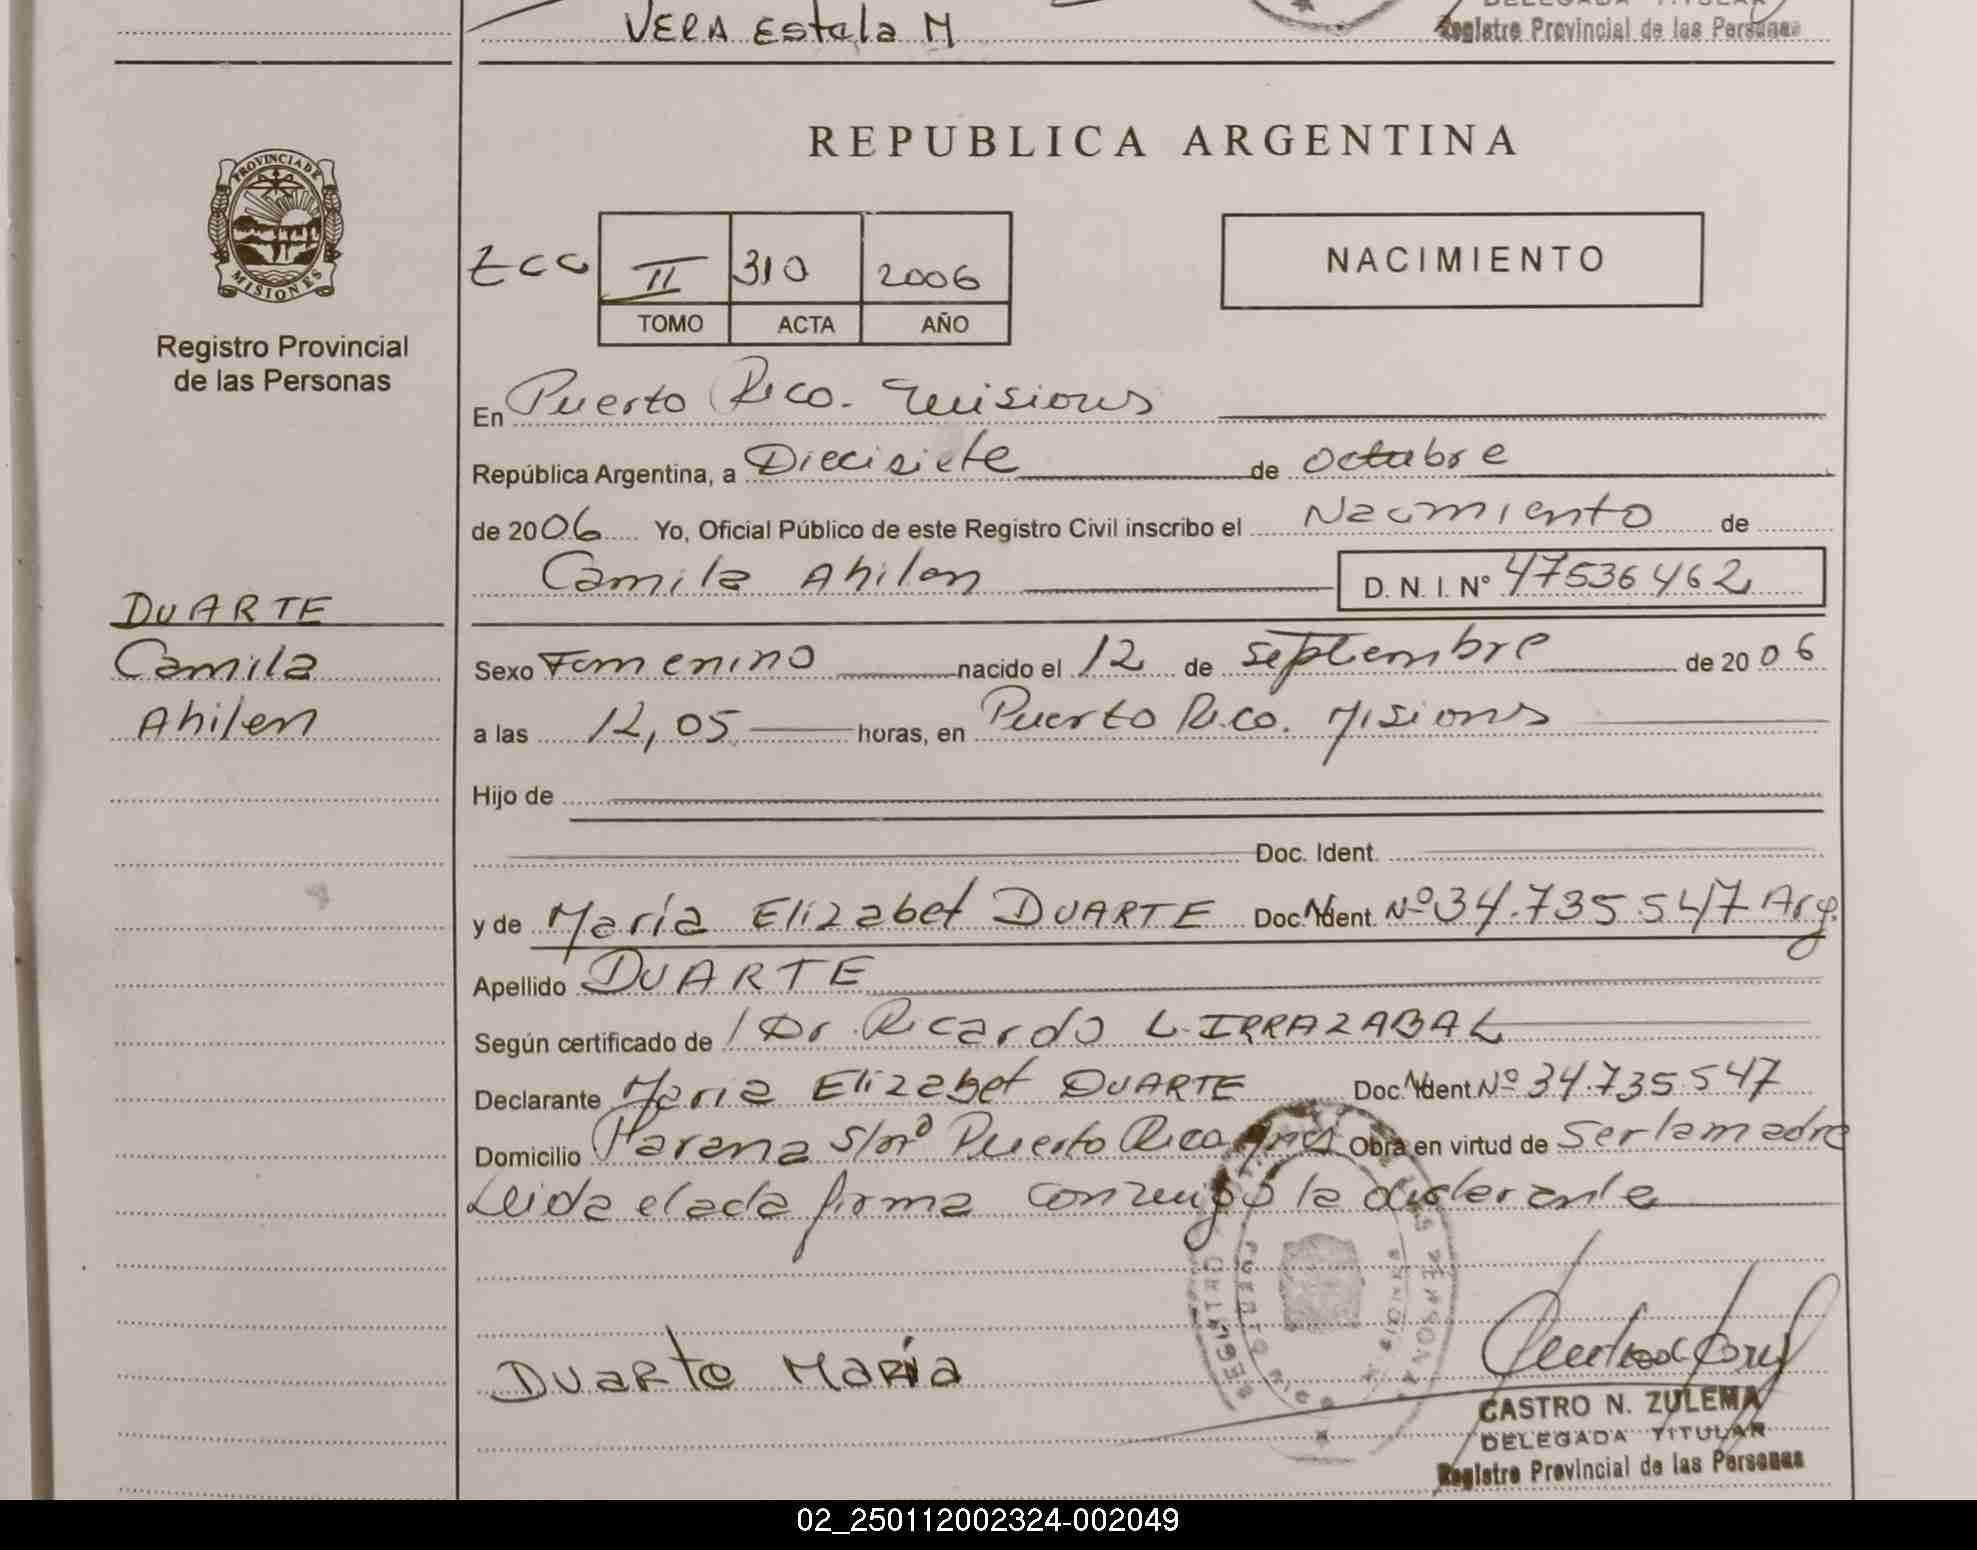 VERA Estela M
DELEGADA TITULAR
Registro Provincial de las Personas
REPUBLICA ARGENTINA
PROVINCIA DE
MISIONES
Registro Provincial
de las Personas
II 310 2006
TOMO ACTA AÑO
NACIMIENTO
En Puerto Rico. Misiones
República Argentina, a Diecisiete de octubre
de 2006 Yo, Oficial Público de este Registro Civil inscribo el Nacimiento de
Camila Ahilen D. N. I. N° 47536462
DUARTE
Camila
Ahilen
Sexo Femenino nacido el 12 de septiembre de 2006
a las 12,05 horas, en Puerto Rico. Misiones
Hijo de
Doc. Ident.
y de María Elizabet DUARTE Doc. Ident. Nº 34.735.547 Arg.
Apellido DUARTE
Según certificado de Dr. Ricardo L. IRRAZABAL
Declarante Maria Elizabet DUARTE Doc. Ident. Nº 34.735.547
Domicilio Parana S/nº Puerto Rico Mnes Obra en virtud de Ser la madre
Leida el acta firma conmigo la declarante
Duarte María
CASTRO N. ZULEMA
DELEGADA TITULAR
Registro Provincial de las Personas
02_250112002324-002049